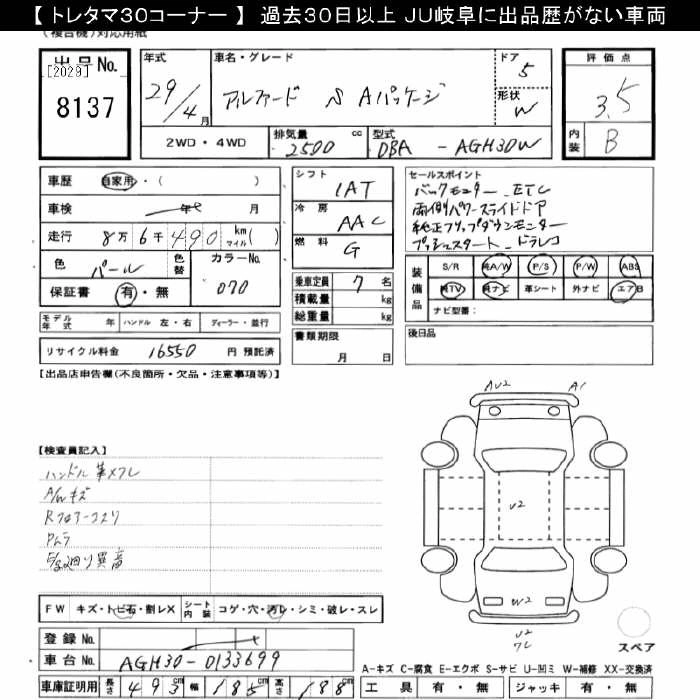 【トレタマ30コーナー】過去30日以上 JU岐阜に出品歴がない車両
(複合機)対応用紙
出品No.
[2029]
8137
年式 29/4月
車名・グレード アルファード S Aパッケージ
ドア 5
形状 W
評価点 3.5
内装 B
2WD・4WD
排気量 2500 cc
型式 DBA - AGH30W
車歴 自家用・( )
車検 年 月
走行 8万6千490 km マイル( )
色 パール 色替
カラーNo. 070
保証書 有・無
シフト IAT
冷房 AAC
燃料 G
乗車定員 7名
積載量 kg
総重量 kg
セールスポイント
バックモニター _ ETC
両側パワースライドドア
純正フリップダウンモニター
プッシュスタート _ ドラレコ
装備品 S/R 純A/W P/S P/W ABS
純TV 純ナビ 革シート 外ナビ エアB
ナビ型番:
モデル年式 年 ハンドル 左・右 ディーラー・並行
リサイクル料金 16550 円 預託済
書類期限 月 日
後日品
【出品店申告欄(不良箇所・欠品・注意事項等)】
【検査員記入】
ハンドル革スレ
A/Wキズ
Rフロアーコスリ
Pムラ
異音
AU2 A1
U2
W2
U2
FW キズ・トビ石・割レX シート内装 コゲ・穴・汚レ・シミ・破レ・スレ
スペア
登録No.
車台No. AGH30-0133699
A-キズ C-腐食 E-エクボ S-サビ U-凹ミ W-補修 XX-交換済
車庫証明用 長さ 493cm 幅 185cm 高さ 188cm
工具 有・無 ジャッキ 有・無